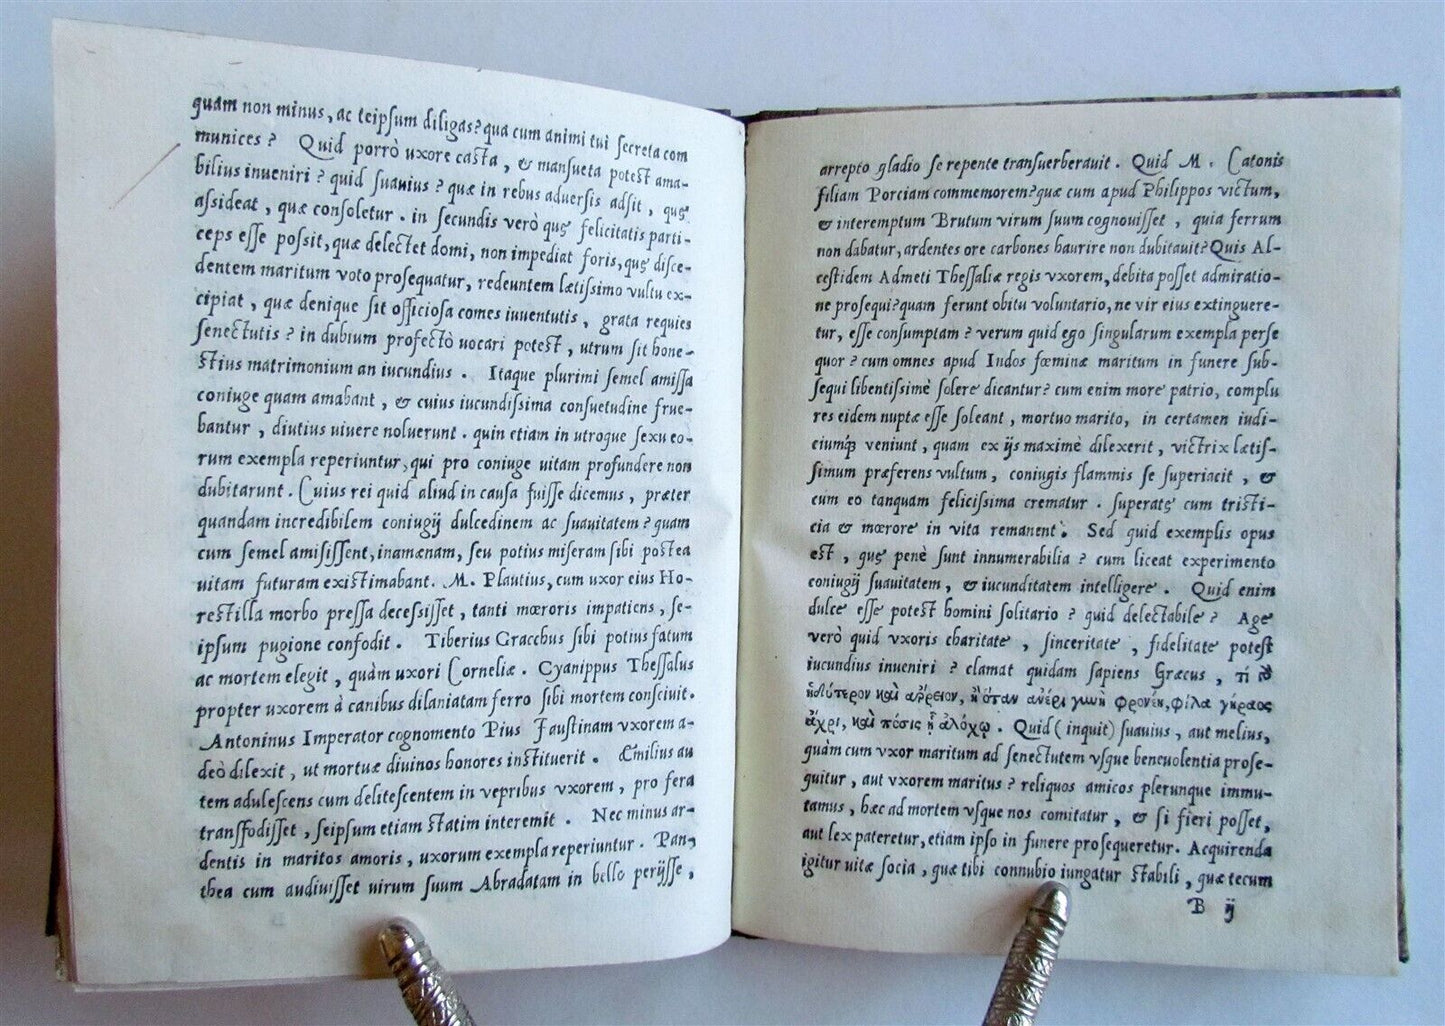 quam non minus, ac teipſum diligas? qua cum animi tui ſecreta com
munices? Quid porrò uxore caſta, & manſueta poteſt ama-
bilius inueniri? quid ſuauius? quæ in rebus adverſis adſit, quę
aſsideat, quæ conſoletur. in ſecundis verò quę felicitatis parti-
ceps eſſe poſsit, quæ delectet domi, non impediat foris, quę diſce-
dentem maritum voto proſequatur, redeuntem lætiſsimo vultu ex-
cipiat, quæ denique ſit officioſa comes iuuentutis, grata requies
ſenectutis? in dubium profectò uocari poteſt, utrum ſit hone-
ſtius matrimonium an iucundius. Itaque plurimi ſemel amiſſa
coniuge quam amabant, & cuius iucundiſsima conſuetudine frue-
bantur, diutius uiuere noluerunt. quin etiam in utroque ſexu eo-
rum exempla reperiuntur, qui pro coniuge uitam profundere non
dubitarunt. Cuius rei quid aliud in cauſa fuiſſe dicemus, præter
quandam incredibilem coniugij dulcedinem ac ſuauitatem? quam
cum ſemel amiſiſſent, inamænam, ſeu potius miſeram ſibi poſtea
uitam futuram exiſtimabant. M. Plautius, cum uxor eius Ho-
reſtilla morbo preſſa deceſsiſſet, tanti mœroris impatiens, ſe-
ipſum pugione confodit. Tiberius Gracchus ſibi potius fatum
ac mortem elegit, quàm uxori Corneliæ. Cyanippus Theſſalus
propter uxorem à canibus dilaniatam ferro ſibi mortem conſciuit.
Antoninus Imperator cognomento Pius Fauſtinam vxorem a-
deò dilexit, ut mortuæ diuinos honores inſtituerit. Æmilius au
tem aduleſcens cum deliteſcentem in vepribus vxorem, pro fera
tranſfodiſſet, ſeipſum etiam ſtatim interemit. Nec minus ar-
dentis in maritos amoris, uxorum exempla reperiuntur. Pan-
thea cum audiuiſſet uirum ſuum Abradatam in bello perijſſe,
arrepto gladio ſe repente tranſuerberauit. Quid M. Catonis
filiam Porciam commemorem? quæ cum apud Philippos victum,
& interemptum Brutum virum ſuum cognouiſſet, quia ferrum
non dabatur, ardentes ore carbones haurire non dubitauit? Quis Al-
ceſtidem Admeti Theſſaliæ regis vxorem, debita poſſet admiratio-
ne proſequi? quam ferunt obitu voluntario, ne vir eius extinguere-
tur, eſſe conſumptam? verum quid ego ſingularum exempla perſe
quor? cum omnes apud Indos fœminæ maritum in funere ſub-
ſequi libentiſsimè ſolere dicantur? cum enim more patrio, complu
res eidem nuptæ eſſe ſoleant, mortuo marito, in certamen iudi-
ciumq́; veniunt, quam ex ijs maximè dilexerit, victrix lætiſ-
ſimum præferens vultum, coniugis flammis ſe ſuperiacit, &
cum eo tanquam feliciſsima crematur. ſuperatę cum triſti-
cia & mœrore in vita remanent. Sed quid exemplis opus
eſt, quę penè ſunt innumerabilia? cum liceat experimento
coniugij ſuauitatem, & iucunditatem intelligere. Quid enim
dulce eſſe poteſt homini ſolitario? quid delectabile? Age
verò quid vxoris charitate, ſinceritate, fidelitate poteſt
iucundius inueniri? clamat quidam ſapiens Græcus, τί
καὶ ἄρρειον, ἢ ὅταν ἀνέρι γυνὴ φρονέη, φίλα γήραος
ἄχρι, καὶ πόσις ᾖ ἀλόχῳ. Quid (inquit) ſuauius, aut melius,
quàm cum vxor maritum ad ſenectutem vſque beneuolentia proſe-
quitur, aut vxorem maritus? reliquos amicos plerunque immu-
tamus, hæc ad mortem vſque nos comitatur, & ſi fieri poſſet,
aut lex pateretur, etiam ipſo in funere proſequeretur. Acquirenda
igitur uitæ ſocia, quæ tibi connubio iungatur ſtabili, quæ tecum
B ij